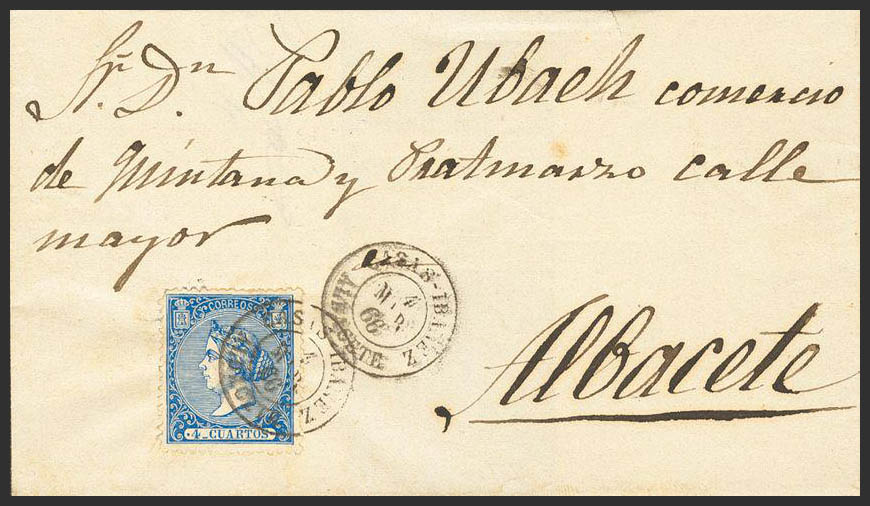 Sr. Dn Pablo Ubach comercio
de Quintana y Pratmarzo calle
mayor
Albacete
CORREOS
4 CUARTOS
CASAS-IBAÑEZ
4
MAR
66
ALBACETE